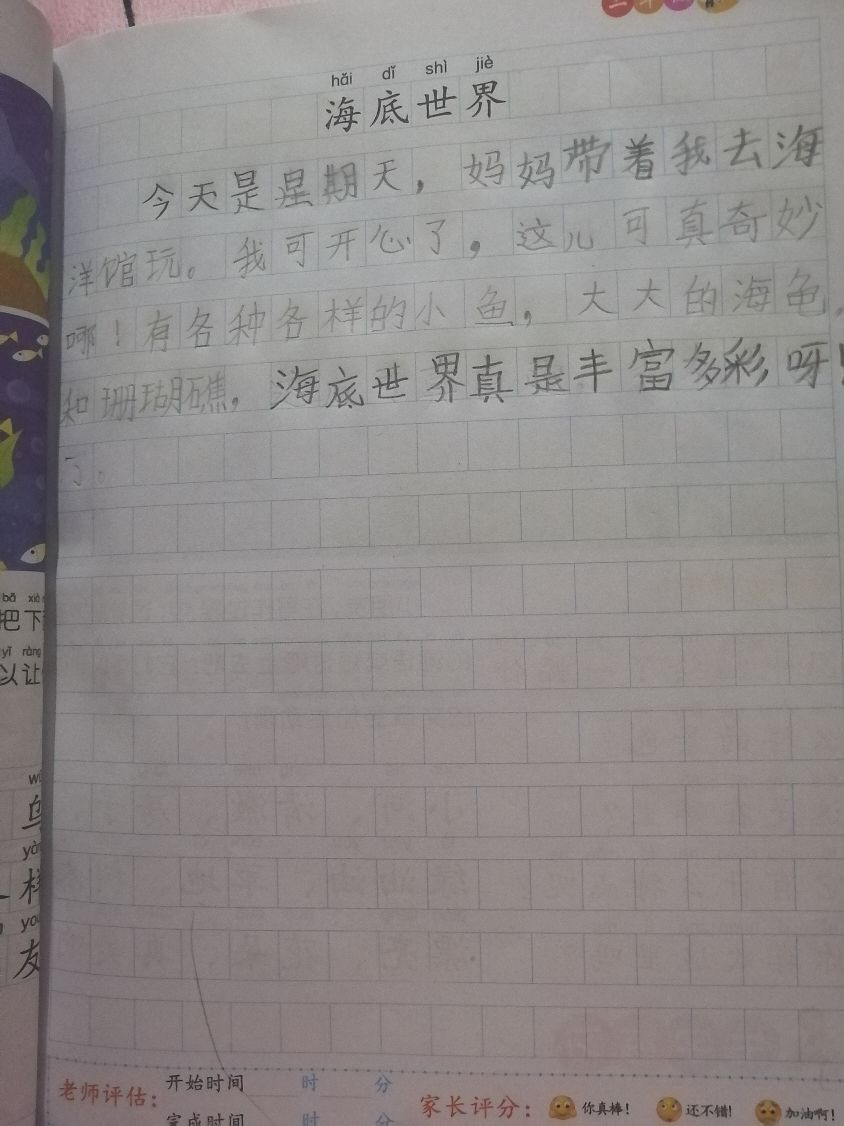 hǎi dǐ shì jiè
海底世界
今天是星期天，妈妈带着我去海
洋馆玩。我可开心了，这儿可真奇妙
哪！有各种各样的小鱼，大大的海龟，
和珊瑚礁，海底世界真是丰富多彩呀！
了。
bǎ xià
把下
yǐ ràng
以让
yàng
样
yǒu
友
老师评估：
开始时间 时 分
完成时间 时 分
家长评分： 你真棒！ 还不错！ 加油啊！